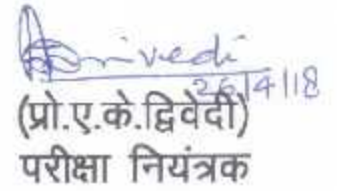 26/4/18
(प्रो.ए.के.द्विवेदी)
परीक्षा नियंत्रक